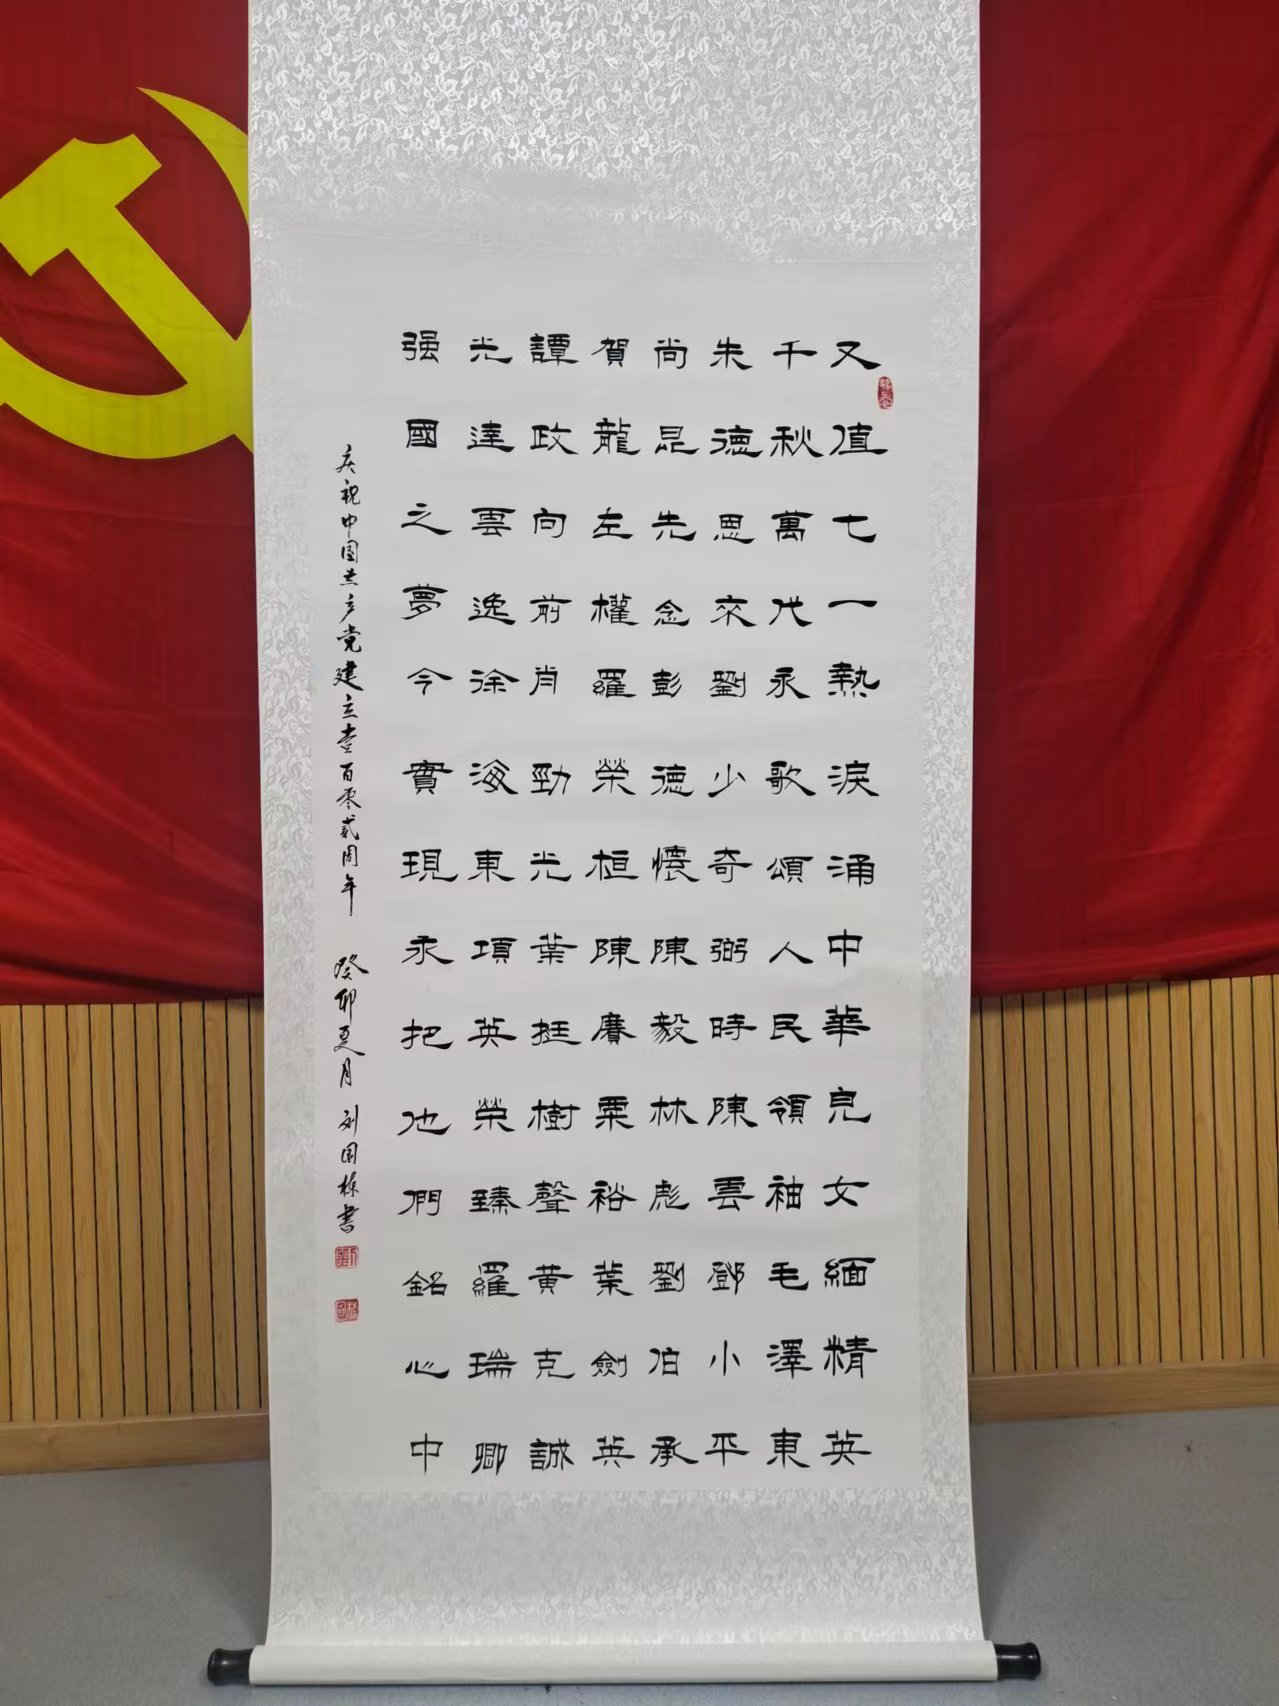 又值七一熱淚涌中華兒女緬精英
千秋萬代永歌頌人民領袖毛澤東
朱德恩來劉少奇弼時陳雲鄧小平
尚昆先念彭德懷陳毅林彪劉伯承
賀龍左權羅榮桓陳賡粟裕葉劍英
譚政向前肖勁光葉挺樹聲黄克誠
光達雲逸徐海東項英榮臻羅瑞卿
强國之夢今實現永把他們銘心中
庆祝中国共产党建立壹百零贰周年 癸卯夏月 刘国栋書